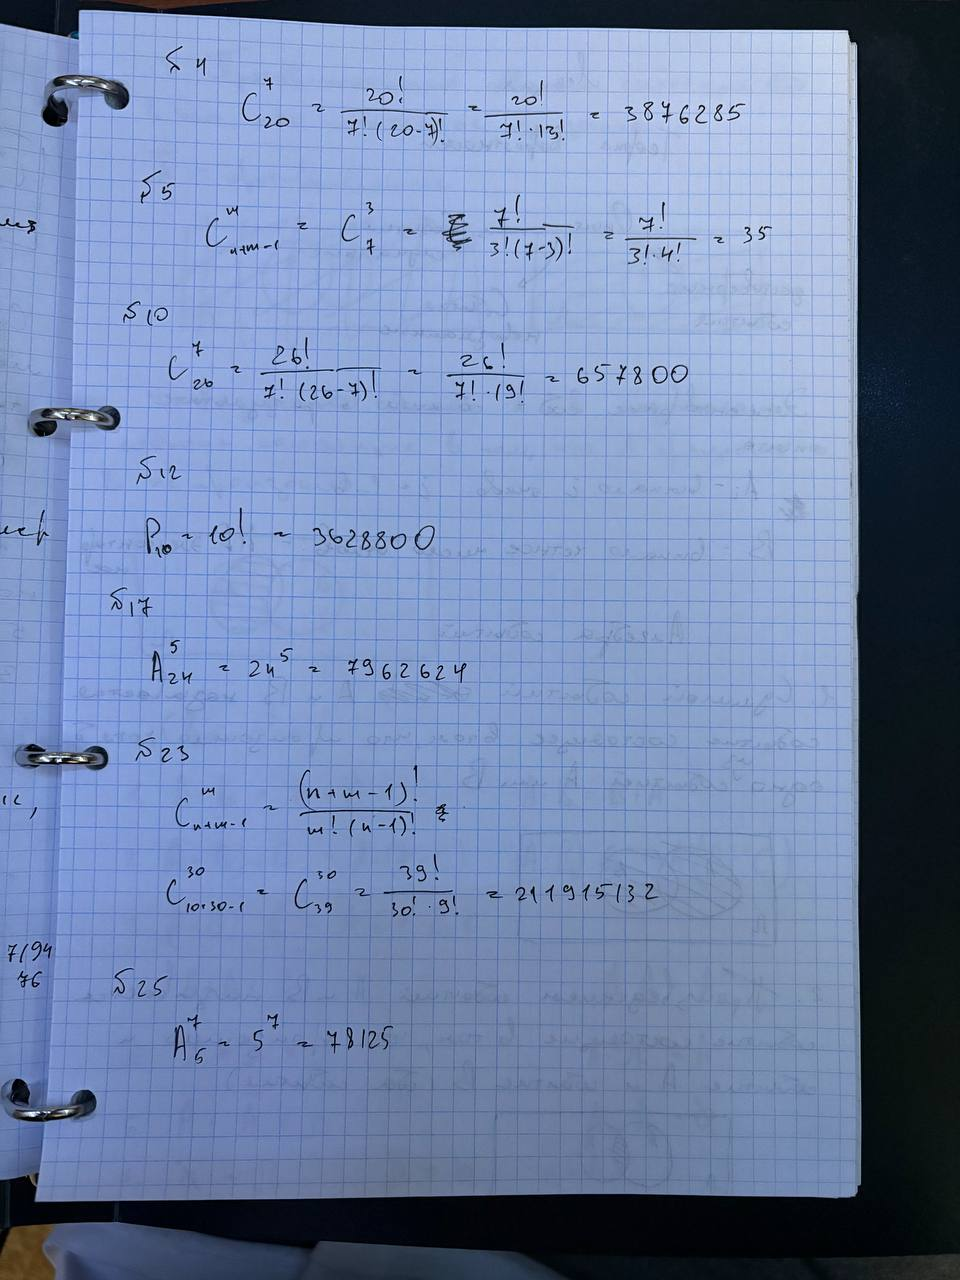 №4
C₂₀⁷ = 20! / 7!(20-7)! = 20! / 7! · 13! = 3876285
№5
Cₙ₊ₘ₋₁ᵐ = C₇³ = 7! / 3!(7-3)! = 7! / 3! · 4! = 35
№10
C₂₆⁷ = 26! / 7! (26-7)! = 26! / 7! · 19! = 657800
№12
P₁₀ = 10! = 3628800
№17
A₂₄⁵ = 24⁵ = 7962624
№23
Cₙ₊ₘ₋₁ᵐ = (n+m-1)! / m! (n-1)!
C₁₀₊₃₀₋₁³⁰ = C₃₉³⁰ = 39! / 30! · 9! = 211915132
7/94
76
№25
A₅⁷ = 5⁷ = 78125